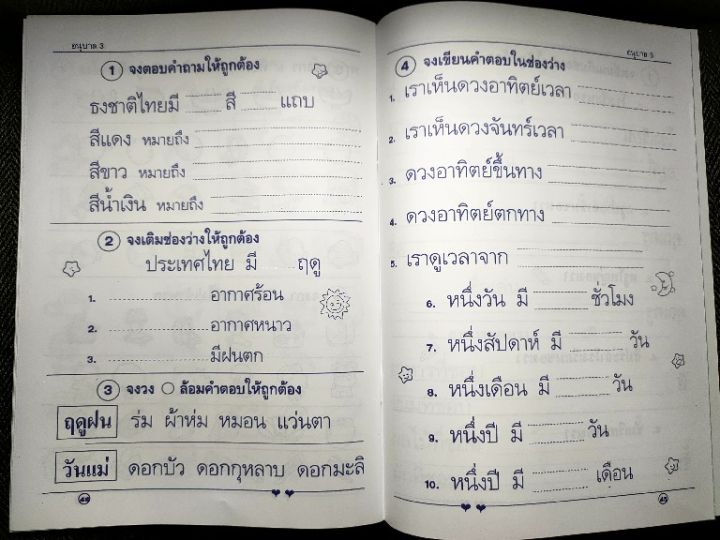 อนุบาล 3
1 จงตอบคำถามให้ถูกต้อง
ธงชาติไทยมี ........ สี ........ แถบ
สีแดง หมายถึง ........
สีขาว หมายถึง ........
สีน้ำเงิน หมายถึง ........
2 จงเติมช่องว่างให้ถูกต้อง
ประเทศไทย มี ........ ฤดู
1. ........ อากาศร้อน
2. ........ อากาศหนาว
3. ........ มีฝนตก
3 จงวง ○ ล้อมคำตอบให้ถูกต้อง
ฤดูฝน ร่ม ผ้าห่ม หมอน แว่นตา
วันแม่ ดอกบัว ดอกกุหลาบ ดอกมะลิ
อนุบาล 3
4 จงเขียนคำตอบในช่องว่าง
1. เราเห็นดวงอาทิตย์เวลา ........
2. เราเห็นดวงจันทร์เวลา ........
3. ดวงอาทิตย์ขึ้นทาง ........
4. ดวงอาทิตย์ตกทาง ........
5. เราดูเวลาจาก ........
6. หนึ่งวัน มี ........ ชั่วโมง
7. หนึ่งสัปดาห์ มี ........ วัน
8. หนึ่งเดือน มี ........ วัน
9. หนึ่งปี มี ........ วัน
10. หนึ่งปี มี ........ เดือน